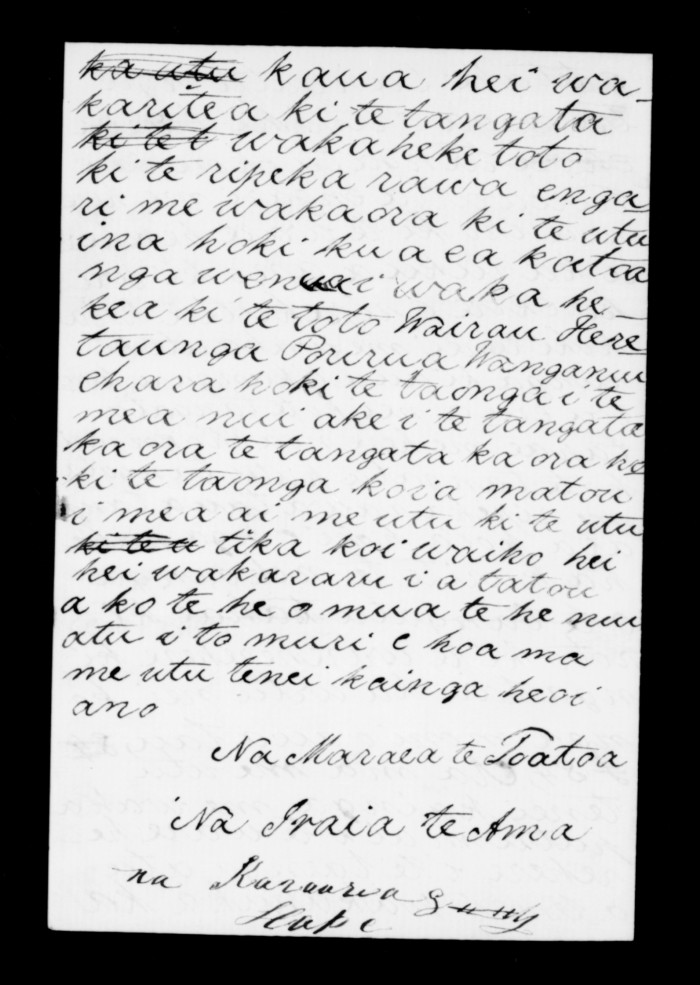 ka utu kaua hei wa-
karitea ki te tangata
ki te t wakaheke toto
ki te ripeka rawa enga
ri me wakaora ki te utu
ina hoki kua ea katoa
nga wenua i waka he-
kea ki te toto Wairau Here
taunga Porirua Wanganui
ehara hoki te taonga i te
mea nui ake i te tangata
ka ora te tangata ka ora he
ki te taonga koia matou
i mea ai me utu ki te utu
ki te u tika koi waiho hei
hei wakararu i a tatou
a ko te he o mua te he nui
atu i to muri e hoa ma
me utu tenei kainga heoi
ano
Na Maraea te Toatoa
Na Iraia te Ama
na
Hapi